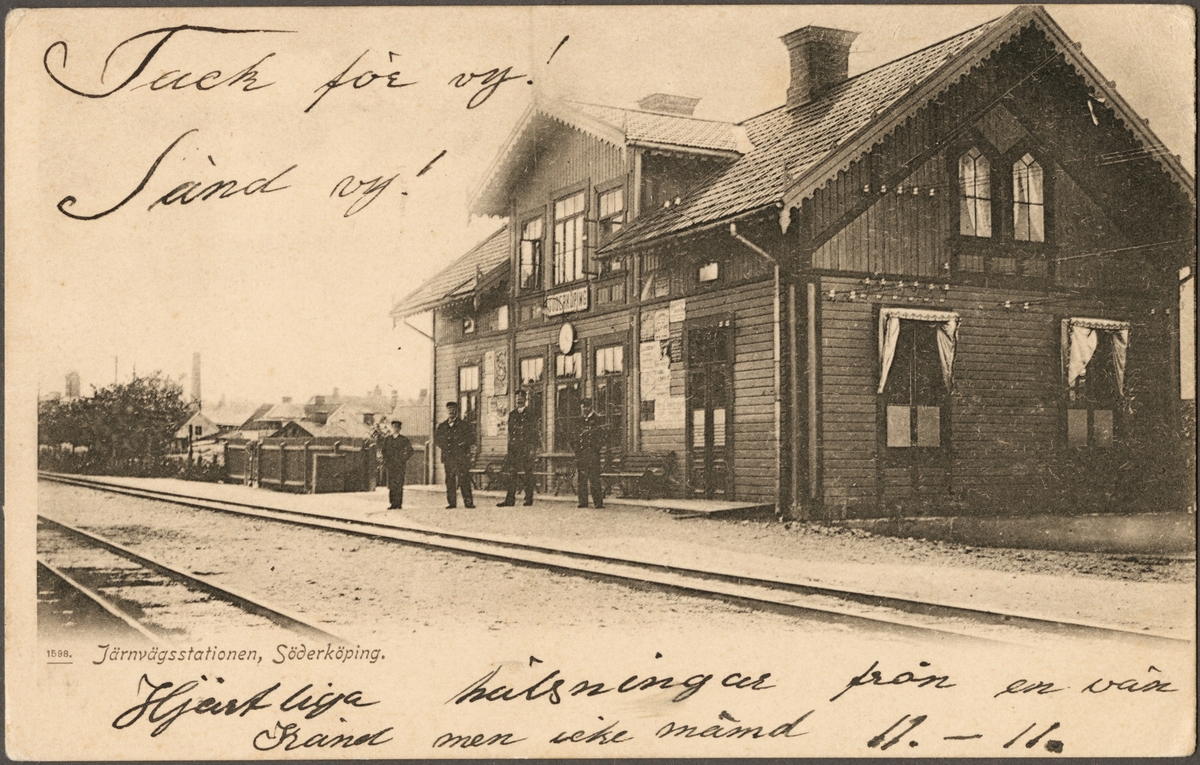 Tack för vy!
Sänd vy!
SÖDERKÖPING
1598. Järnvägsstationen, Söderköping.
Hjärtliga hälsningar från en vän
Känd men icke nämd 11. – 11.